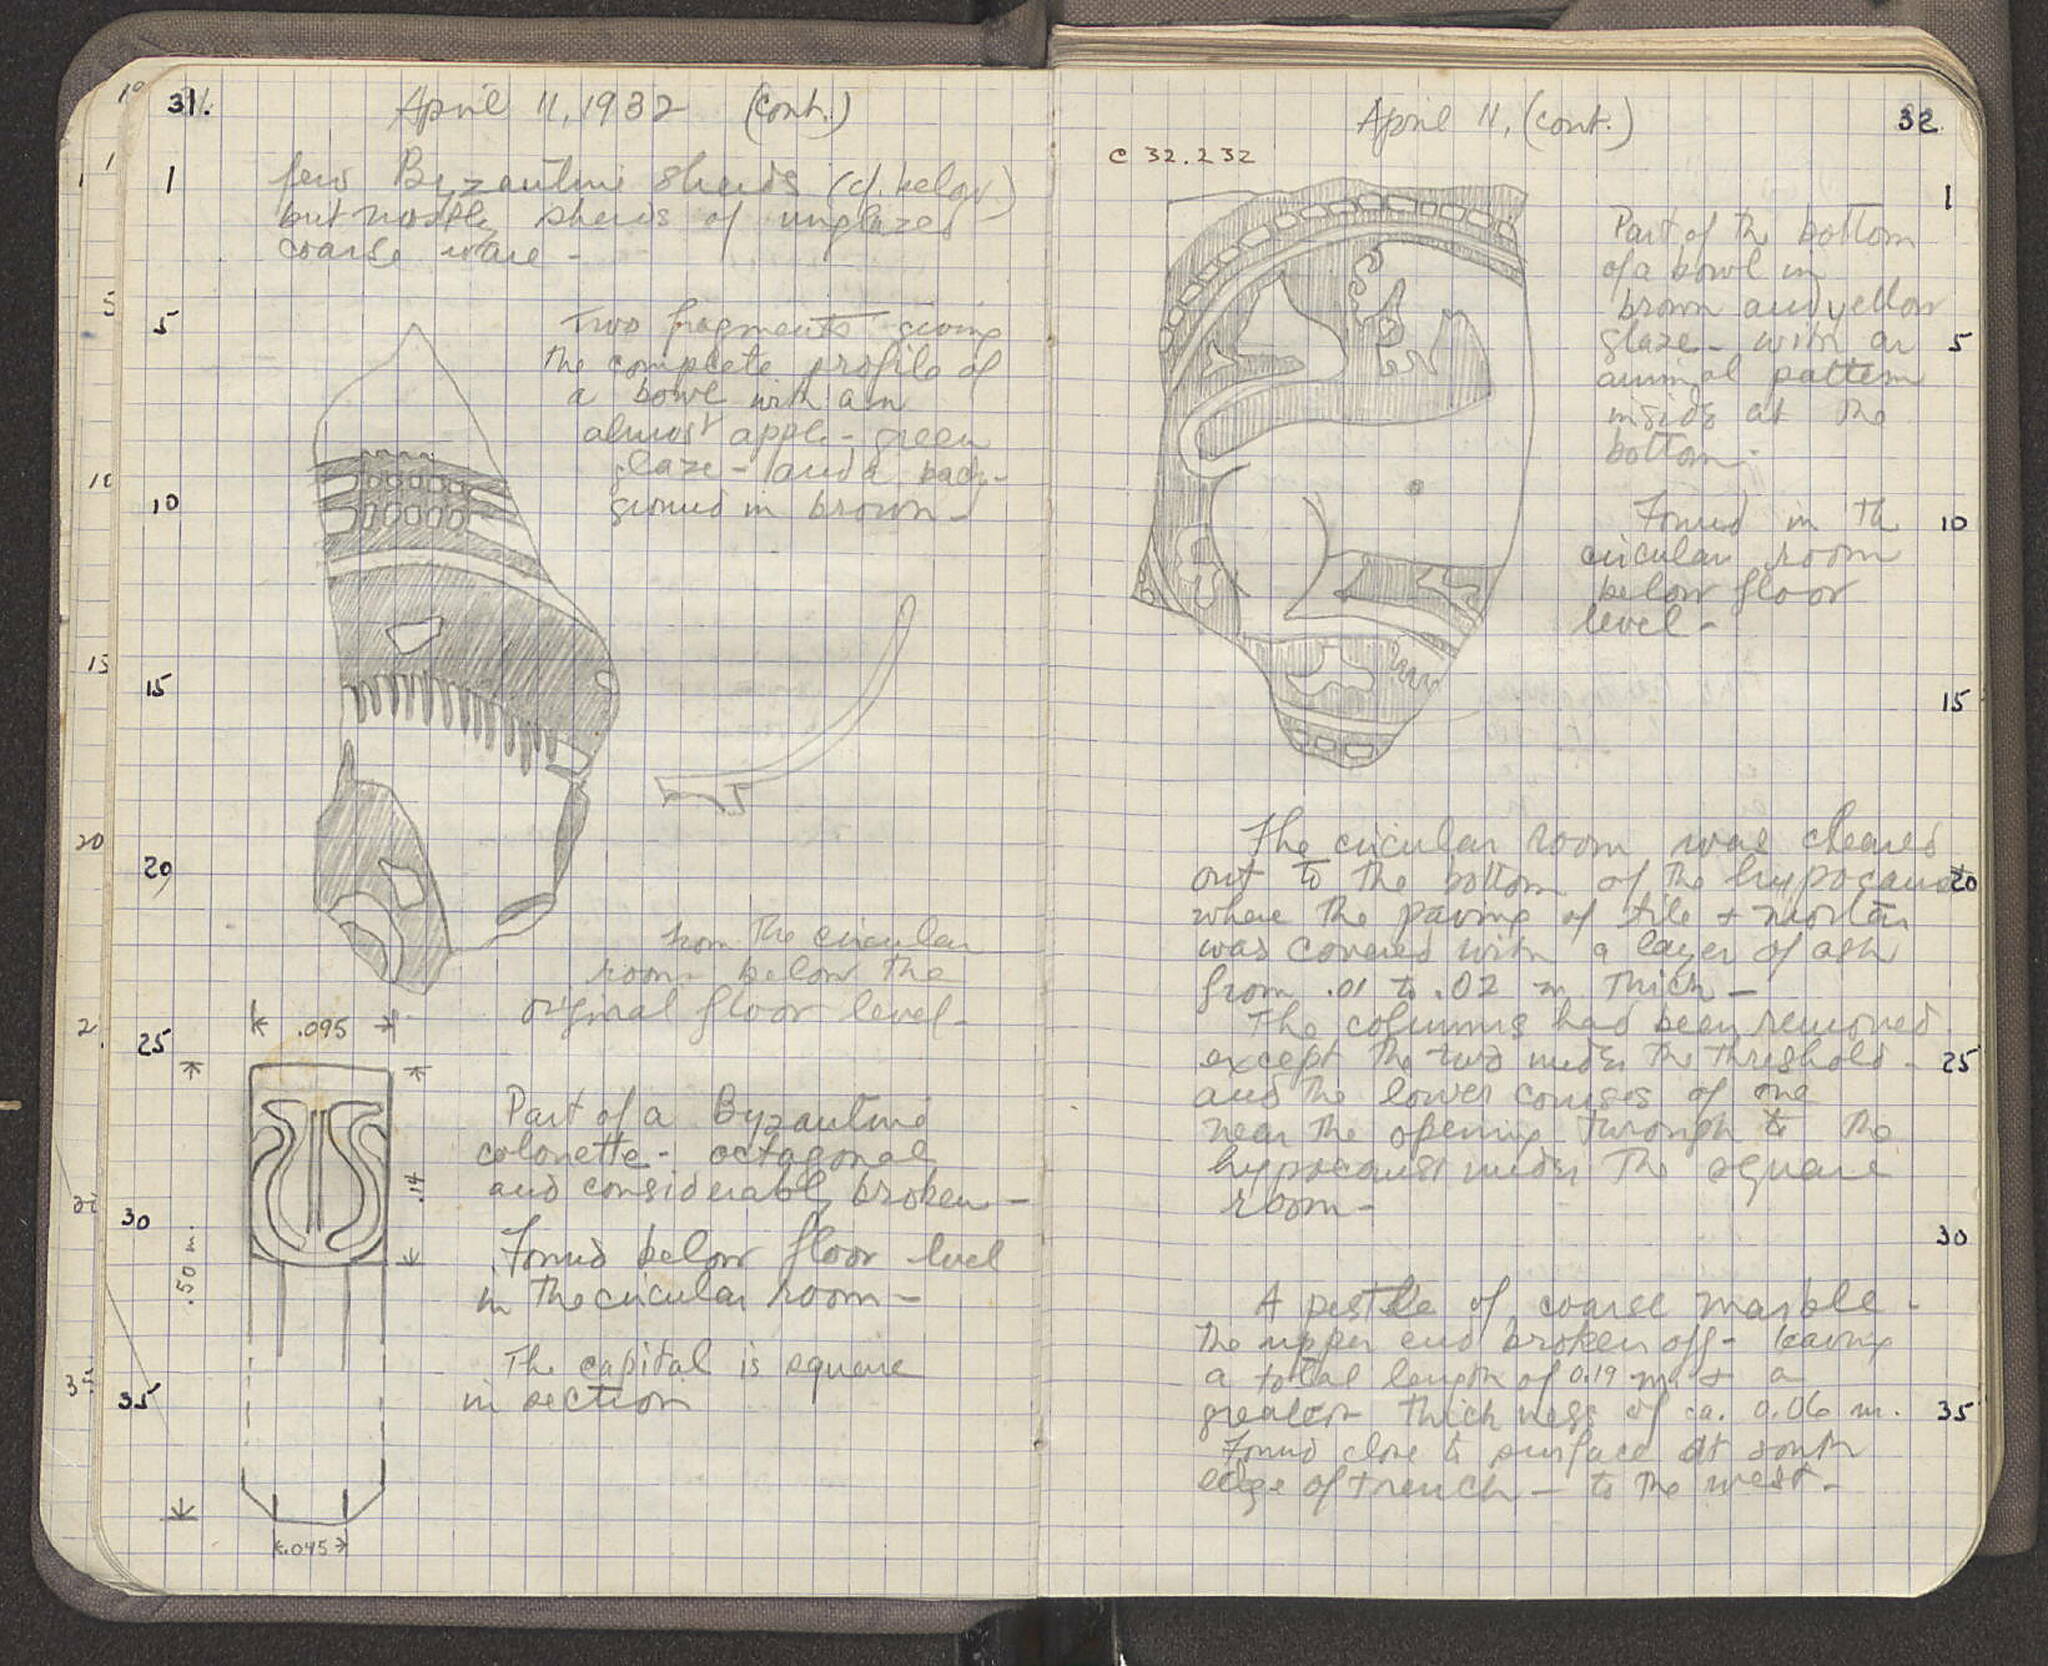 31.
April 11, 1932 (cont.)
1
few Byzantine sherds (cf. below)
but mostly sherds of unglazed
coarse ware -
5
Two fragments giving
the complete profile of
a bowl with an
almost apple-green
glaze - and a back-
ground in brown -
10
15
20
from the circular
room below the
original floor level -
.095
25
Part of a Byzantine
colonette - octagonal
and considerably broken -
.14
30
.50 m.
Found below floor level
in the circular room -
The capital is square
in section
35
.045
April 11, (cont.)
32
C 32.232
1
Part of the bottom
of a bowl in
brown and yellow
glaze - with an
5
animal pattern
inside at the
bottom -
Found in the
10
circular room
below floor
level -
15
The circular room was cleared
out to the bottom of the hypocaust
20
where the paving of tile + mortar
was covered with a layer of ash
from .01 to .02 m thick -
The columns had been removed
except the two under the threshold -
25
and the lower courses of one
near the opening through to the
hypocaust under the square
room -
30
A pestle of coarse marble -
the upper end broken off - leaving
a total length of 0.19 m + a
greatest thickness of ca. 0.06 m.
35
Found close to surface at south
edge of trench - to the west -